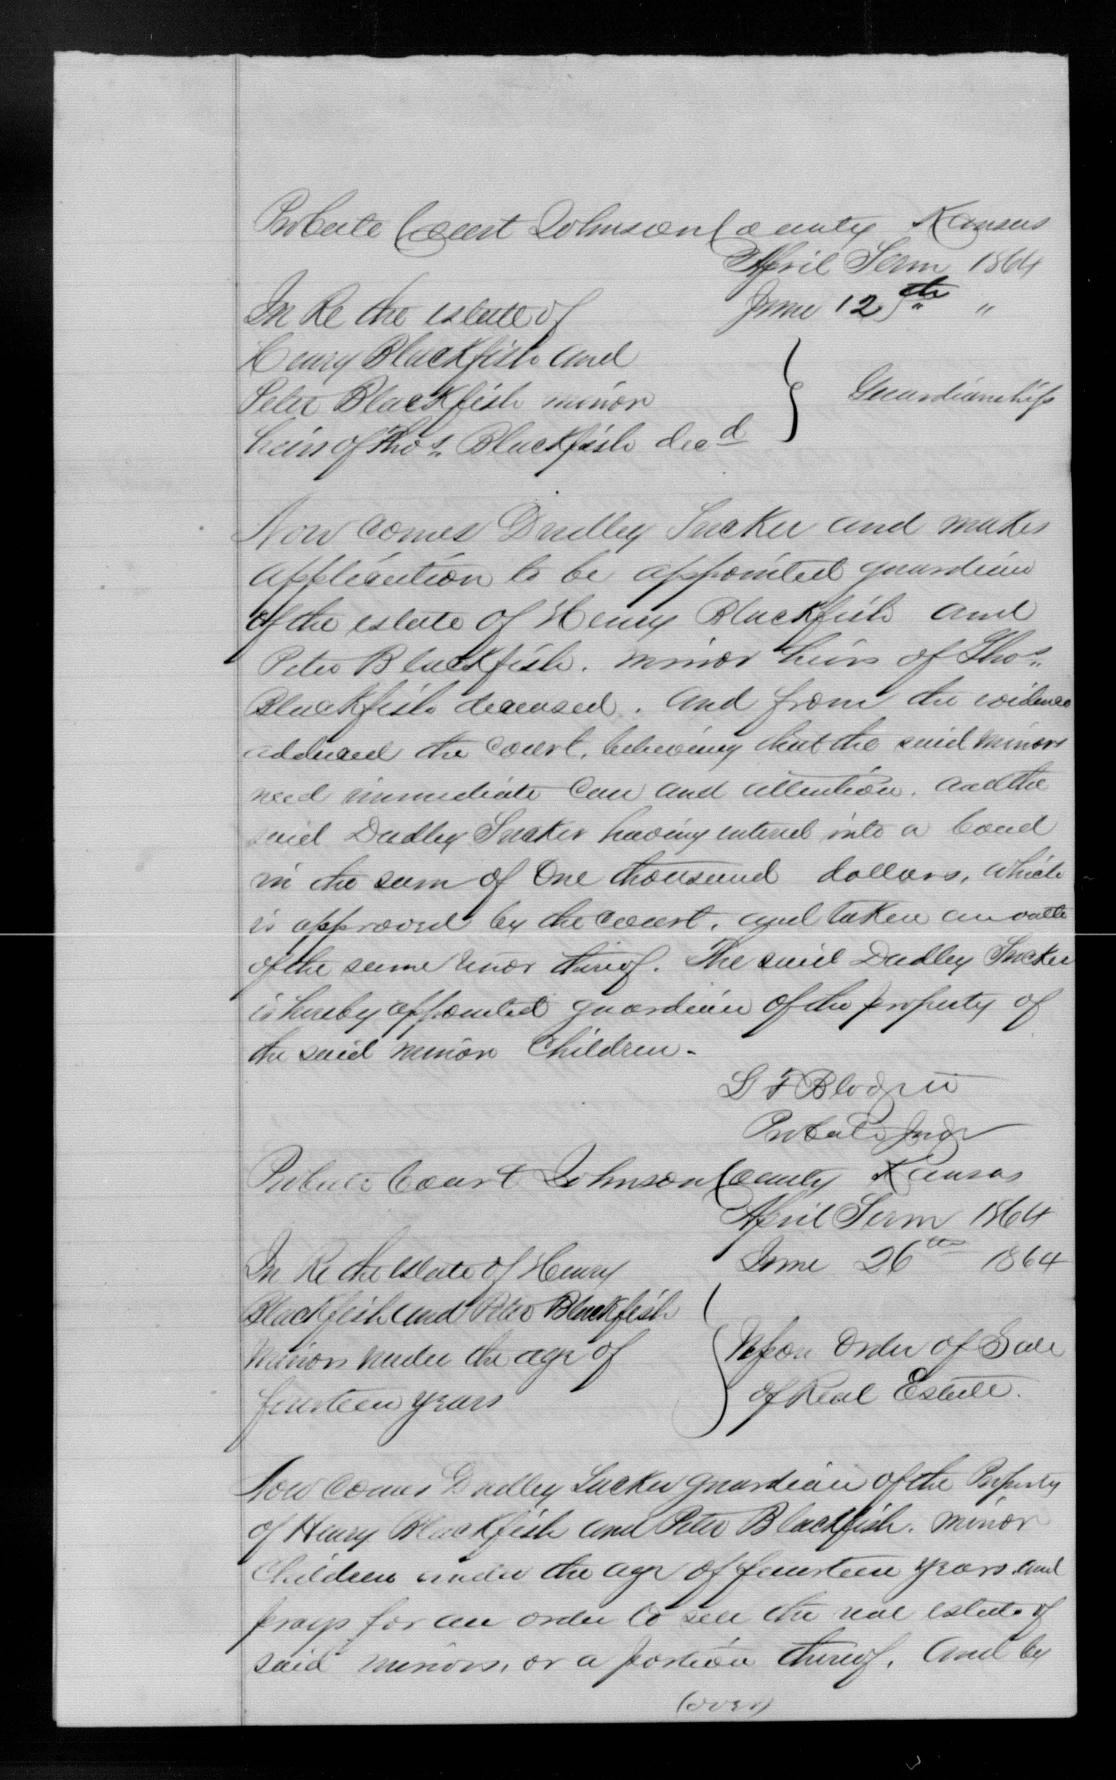 Probate Court Johnson County Kansas
April Term 1864
In Re the estate of June 12th "
Henry Blackfish and
Peter Blackfish minor Guardianship
heirs of Thos. Blackfish decd
Now comes Dudley Tucker and makes
application to be appointed guardian
of the estate of Henry Blackfish and
Peter Blackfish. minor heirs of Thos.
Blackfish deceased. and from the evidence
adduced the court, believing that the said minors
need immediate care and attention. and the
said Dudley Tucker having entered into a bond
in the sum of One thousand dollars, which
is approved by the court, and taken an oath
of the same tenor thereof. The said Dudley Tucker
is hereby appointed guardian of the property of
the said minor children.
Probate Judge
Probate Court Johnson County Kansas
April Term 1864
In Re the estate of Henry June 26th 1864
Blackfish and Peter Blackfish
Minors under the age of Upon Order of Sale
fourteen years of Real Estate.
Now comes Dudley Tucker guardian of the Property
of Henry Blackfish and Peter Blackfish. minor
Children under the age of fourteen years. and
prays for an order to sell the real estate of
said minors, or a portion thereof. And by
(over)